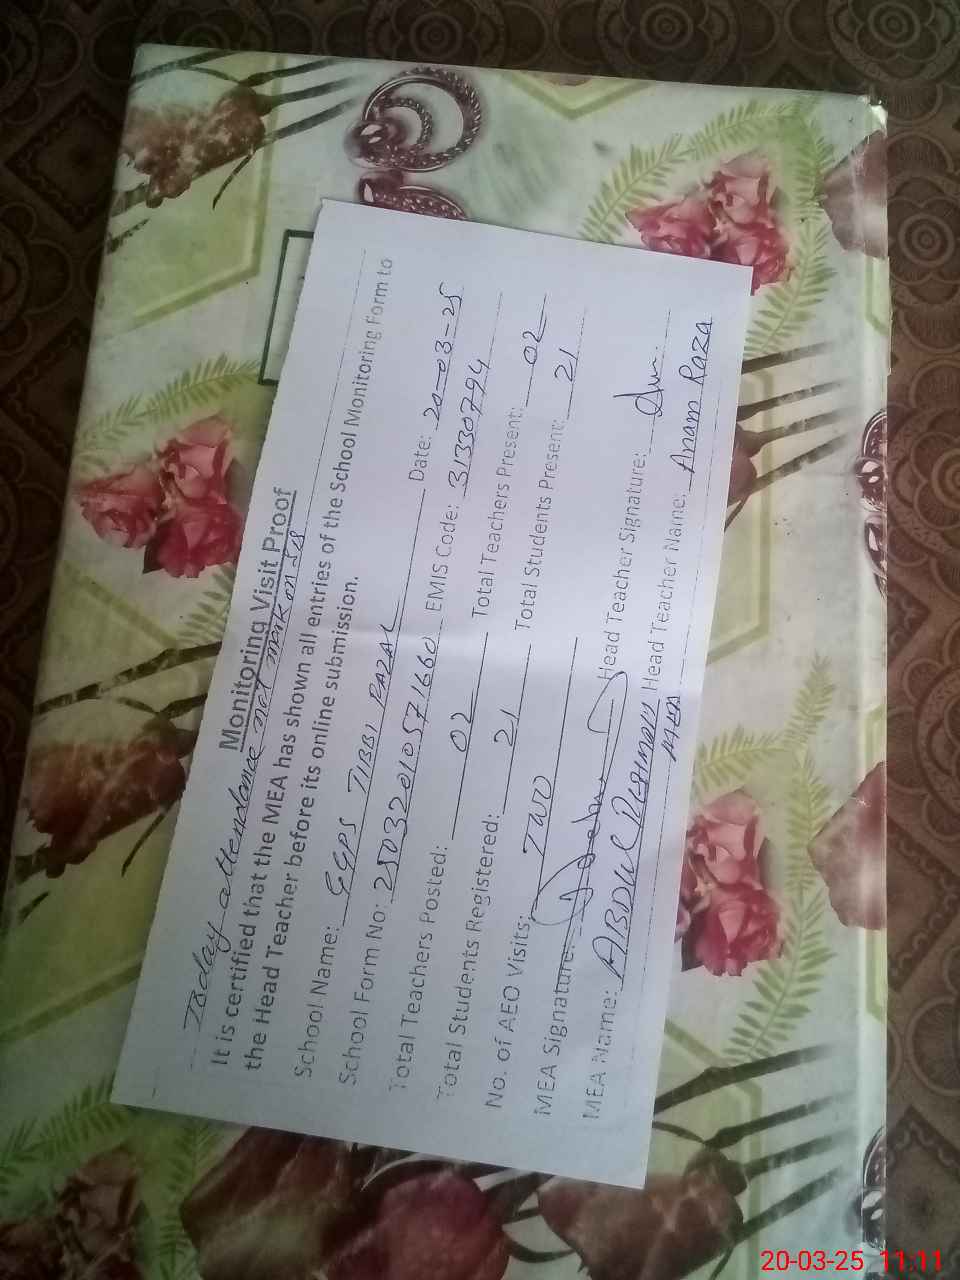 Monitoring Visit Proof
Today attendance not mark on SIS
It is certified that the MEA has shown all entries of the School Monitoring Form to
the Head Teacher before its online submission.
School Name: GGPS TIBBI PAZAL Date: 20-03-25
School Form No: EMIS Code: 31330794
Total Teachers Posted: 02 Total Teachers Present: 02
Total Students Registered: 21 Total Students Present: 21
No. of AEO Visits: TWO
MEA Signature: Head Teacher Signature:
MEA Name: ABDUL Head Teacher Name: Anam Raza
20-03-25 11:11